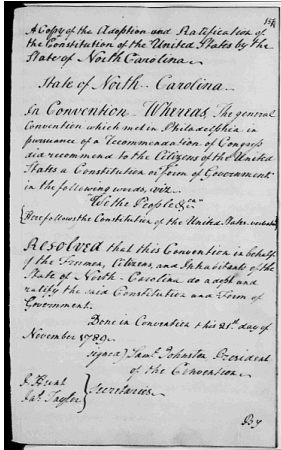 A Copy of the Adoption and Ratification of
the Constitution of the United States by the
State of North Carolina.
State of North-Carolina.
In Convention. Whereas, The general
Convention which met in Philadelphia in
pursuance of a recommendation of Congress
did recommend to the Citizens of the United
States a Constitution or form of Government
in the following words, viz.
"We the People &ca"
(Here follows the Constitution of the United States
Resolved that this Convention in behalf
of the Freemen, Citizens, and Inhabitants of the
State of North-Carolina do adopt and
ratify the said Constitution and Form of
Government.
Done in Convention this 21st day of
November 1789.
signed) Saml Johnston President
of the Convention.
J Hunt
Jas Taylor } Secretaries.
By